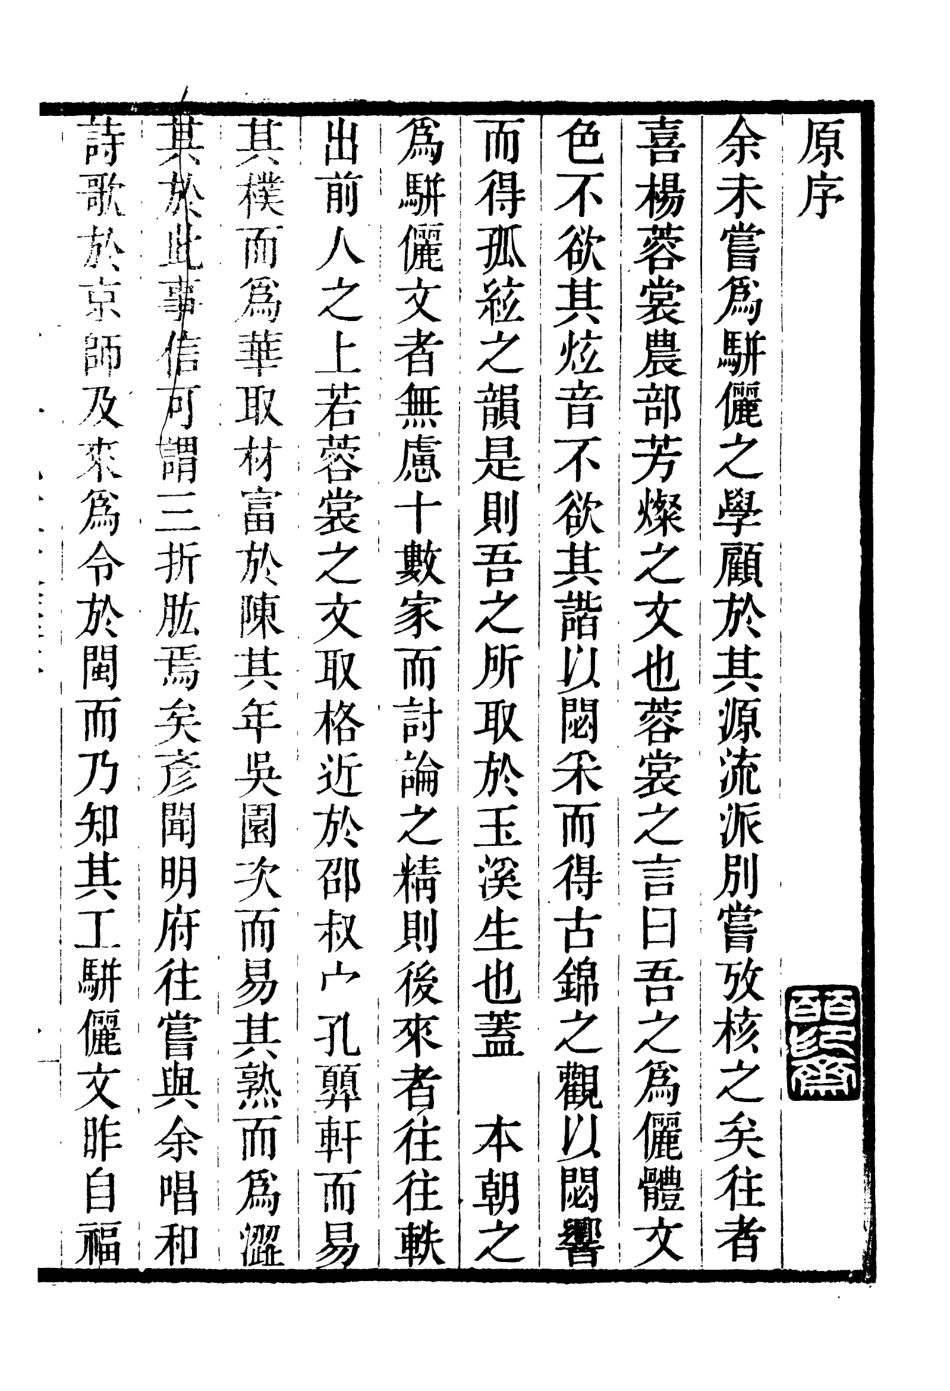 原序
余未嘗爲駢儷之學顧於其源流派別嘗攷核之矣往者
喜楊蓉裳農部芳燦之文也蓉裳之言曰吾之爲儷體文
色不欲其炫音不欲其諧以閟采而得古錦之觀以閟響
而得孤絃之韻是則吾之所取於玉溪生也蓋　本朝之
爲駢儷文者無慮十數家而討論之精則後來者往往軼
出前人之上若蓉裳之文取格近於邵叔宀孔顨軒而易
其樸而爲華取材富於陳其年吳園次而易其熟而爲澀
其於此事信可謂三折肱焉矣彥聞明府往嘗與余唱和
詩歌於京師及來爲令於閩而乃知其工駢儷文昨自福
百記齋